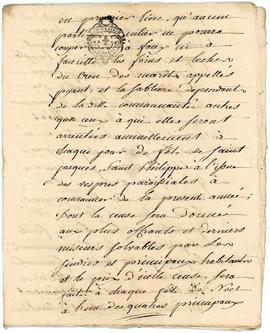 en premier lieu, qu'aucun
particulier ne pourra
couper a faux ni a
faucille les foins et leches
du creu des marêts appellés
et la sabliere dependant
de la ditte communauté autres
que ceux a qui elles seront
arrentées annuellement a
chaque jour de fête de Saint
Jacques, Saint Philippe à l'issue
des vespres paroissiales a
commencer la presente année;
dont la cense sera donnée
aux plus offrants et derniers
miseurs solvables par Les
sindics et principaux habitans
et le prix d'icelle cense, sera
a chaque fête de Noel
a l'un des quatres principaux